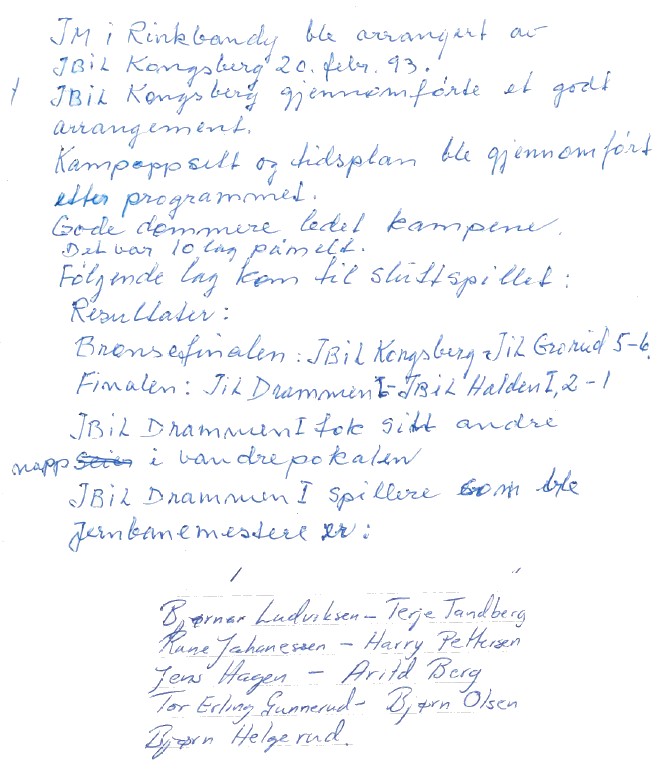 JM i Rinkbandy ble arrangert av
JBiL Kongsberg 20. febr. 93.
JBiL Kongsberg gjennomførte et godt
arrangement.
Kampoppsett og tidsplan ble gjennomført
etter programmet.
Gode dommere ledet kampene.
Det var 10 lag påmeldt.
Følgende lag kom til sluttspillet:
Resultater:
Bronsefinalen: JBiL Kongsberg - JiL Grorud 5-6.
Finalen: JiL Drammen I - JBiL Halden I, 2-1
JBiL Drammen I fok sitt andre
napp i vandrepokalen
JBiL Drammen I spillere som ble
jernbanemestere er:
Bjørnar Ludviksen - Terje Tandberg
Rune Johanessen - Harry Pettersen
Jens Hagen - Arild Berg
Tor Erling Gunnerud - Bjørn Olsen
Bjørn Helgerud.